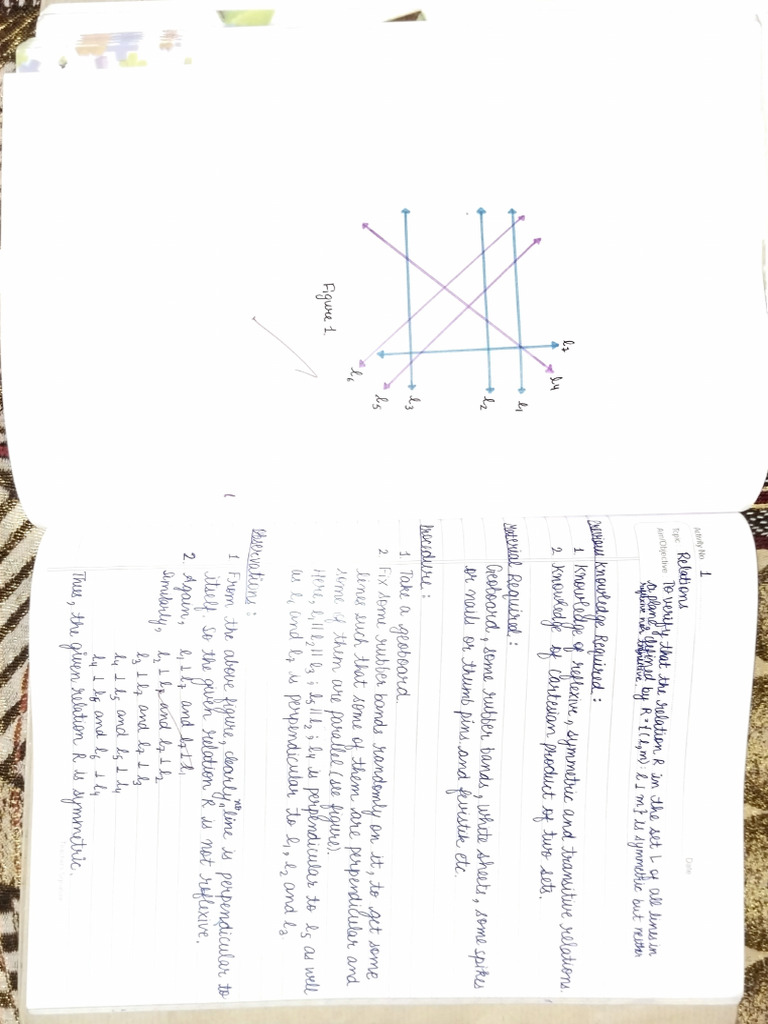 l7
l4
l1
l2
l3
l5
l6
Figure 1
Activity No. 1
Date
Topic Relations
Aim/Objective To verify that the relation R in the set L of all lines in
a plane, defined by R = {(l,m) : l ⊥ m} is symmetric but neither
reflexive nor transitive.
Previous Knowledge Required :
1 Knowledge of reflexive, symmetric and transitive relations.
2 Knowledge of Cartesian product of two sets.
Material Required :
Geoboard, some rubber bands, white sheets, some spikes
or nails or thumb pins and fevistik etc.
Procedure :
1 Take a geoboard.
2 Fix some rubber bands randomly on it, to get some
lines such that some of them are perpendicular and
some of them are parallel (see figure).
Here, l1 || l2 || l3 ; l4 is perpendicular to l5 as well
as l6 and l7 is perpendicular to l1, l2 and l3.
Observations :
1 From the above figure, clearly no line is perpendicular to
itself. So the given relation R is not reflexive.
2. Again, l1 ⊥ l7 and l7 ⊥ l1
Similarly, l2 ⊥ l7 and l7 ⊥ l2
l3 ⊥ l7 and l7 ⊥ l3
l4 ⊥ l5 and l5 ⊥ l4
l4 ⊥ l6 and l6 ⊥ l4
Thus, the given relation R is symmetric.